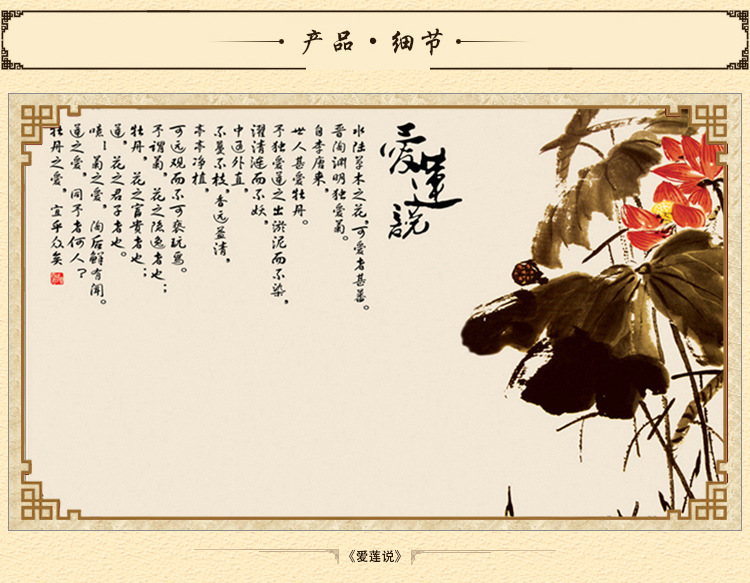 产品·细节
爱莲说
水陆草木之花，可爱者甚蕃。
晋陶渊明独爱菊。
自李唐来，
世人甚爱牡丹。
予独爱莲之出淤泥而不染，
濯清涟而不妖，
中通外直，
不蔓不枝，香远益清，
亭亭净植，
可远观而不可亵玩焉。
予谓菊，花之隐逸者也；
牡丹，花之富贵者也；
莲，花之君子者也。
噫！菊之爱，陶后鲜有闻。
莲之爱，同予者何人？
牡丹之爱，宜乎众矣
《爱莲说》